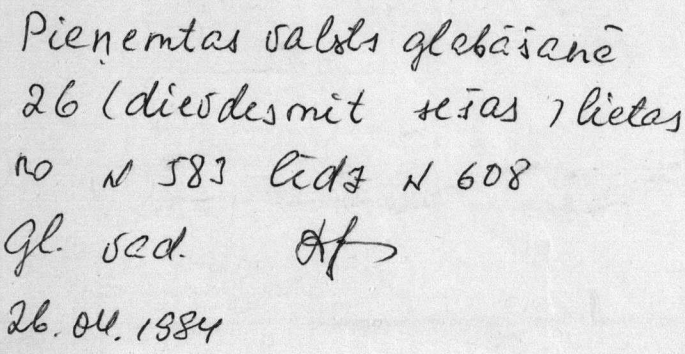 Pieņemtas valsts glabāšanē
26 (divdesmit sešas) lietas
no N 583 līdz N 608
Gl. vad.
26. 04. 1984